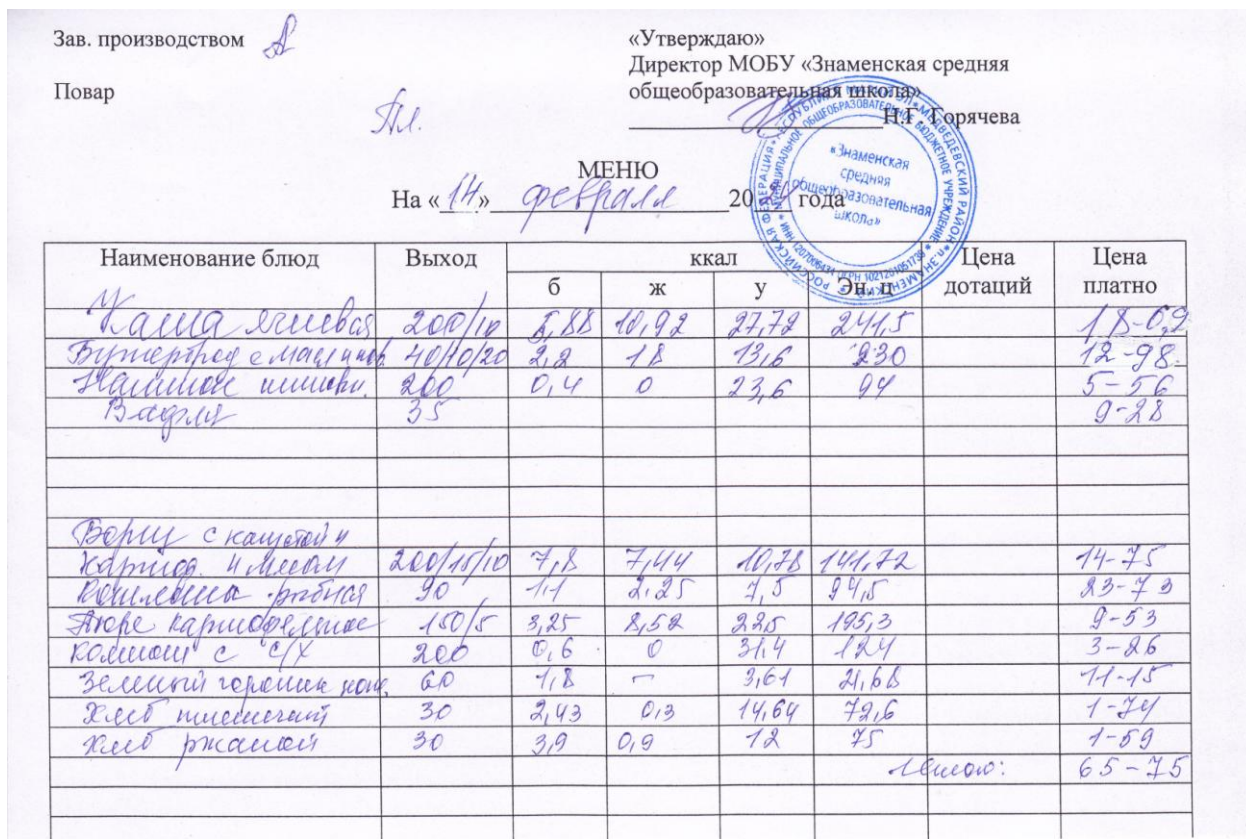 Зав. производством
«Утверждаю»
Директор МОБУ «Знаменская средняя
Повар
общеобразовательная школа»
Н.Г. Горячева
МЕНЮ
На «14» февраля 20 года
«Знаменская
средняя
общеобразовательная
школа»
Наименование блюд Выход ккал Цена дотаций Цена платно
б ж у Эн. ц
Каша ячневая 200/10 5,88 10,92 27,72 241,5 18-09
Бутерброд с масл 40/10/20 2,2 18 13,6 230 12-98
Напиток шиповн. 200 0,4 0 23,6 94 5-56
Вафли 35 9-28
Борщ с капустой и
картоф. и мясом 200/15/10 7,8 7,44 10,78 141,72 14-75
рыбная 90 1,1 2,25 7,5 94,5 23-73
Пюре картофельное 150/5 3,25 8,52 22,5 195,3 9-53
компот с с/х 200 0,6 0 31,4 124 3-26
зеленый горошек конс. 60 1,8 - 3,61 21,68 11-15
Хлеб пшеничный 30 2,43 0,3 14,64 72,6 1-74
хлеб ржаной 30 3,9 0,9 12 75 1-59
Итого: 65-75